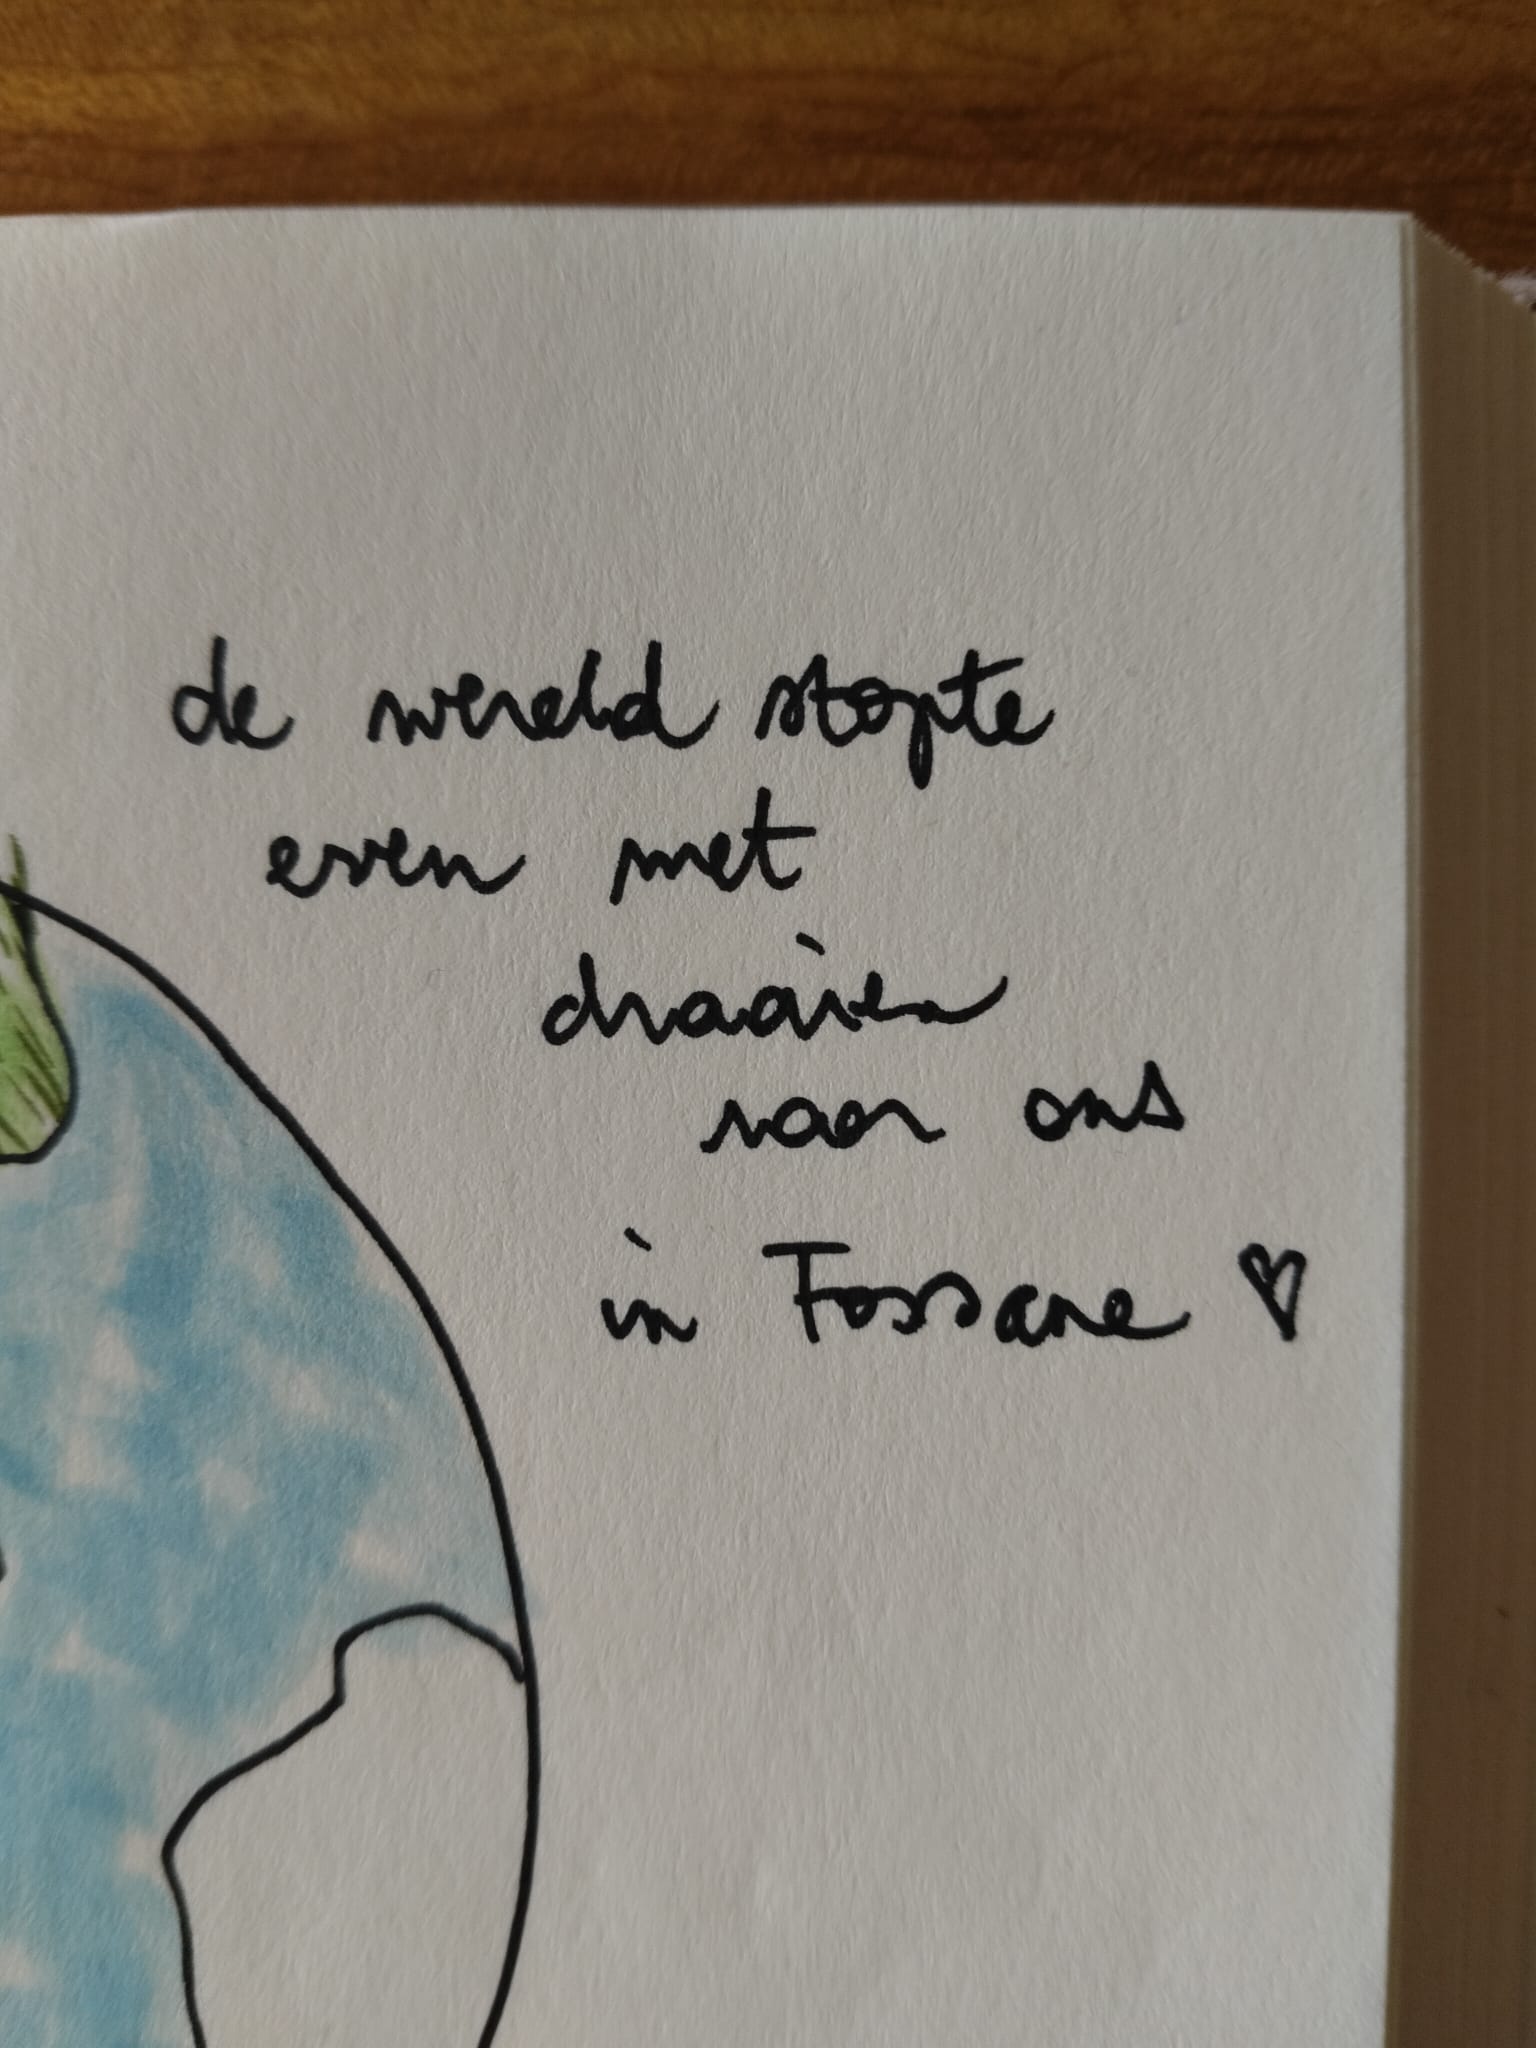 de wereld stopte
even met
draaien
voor ons
in Fossane ♡